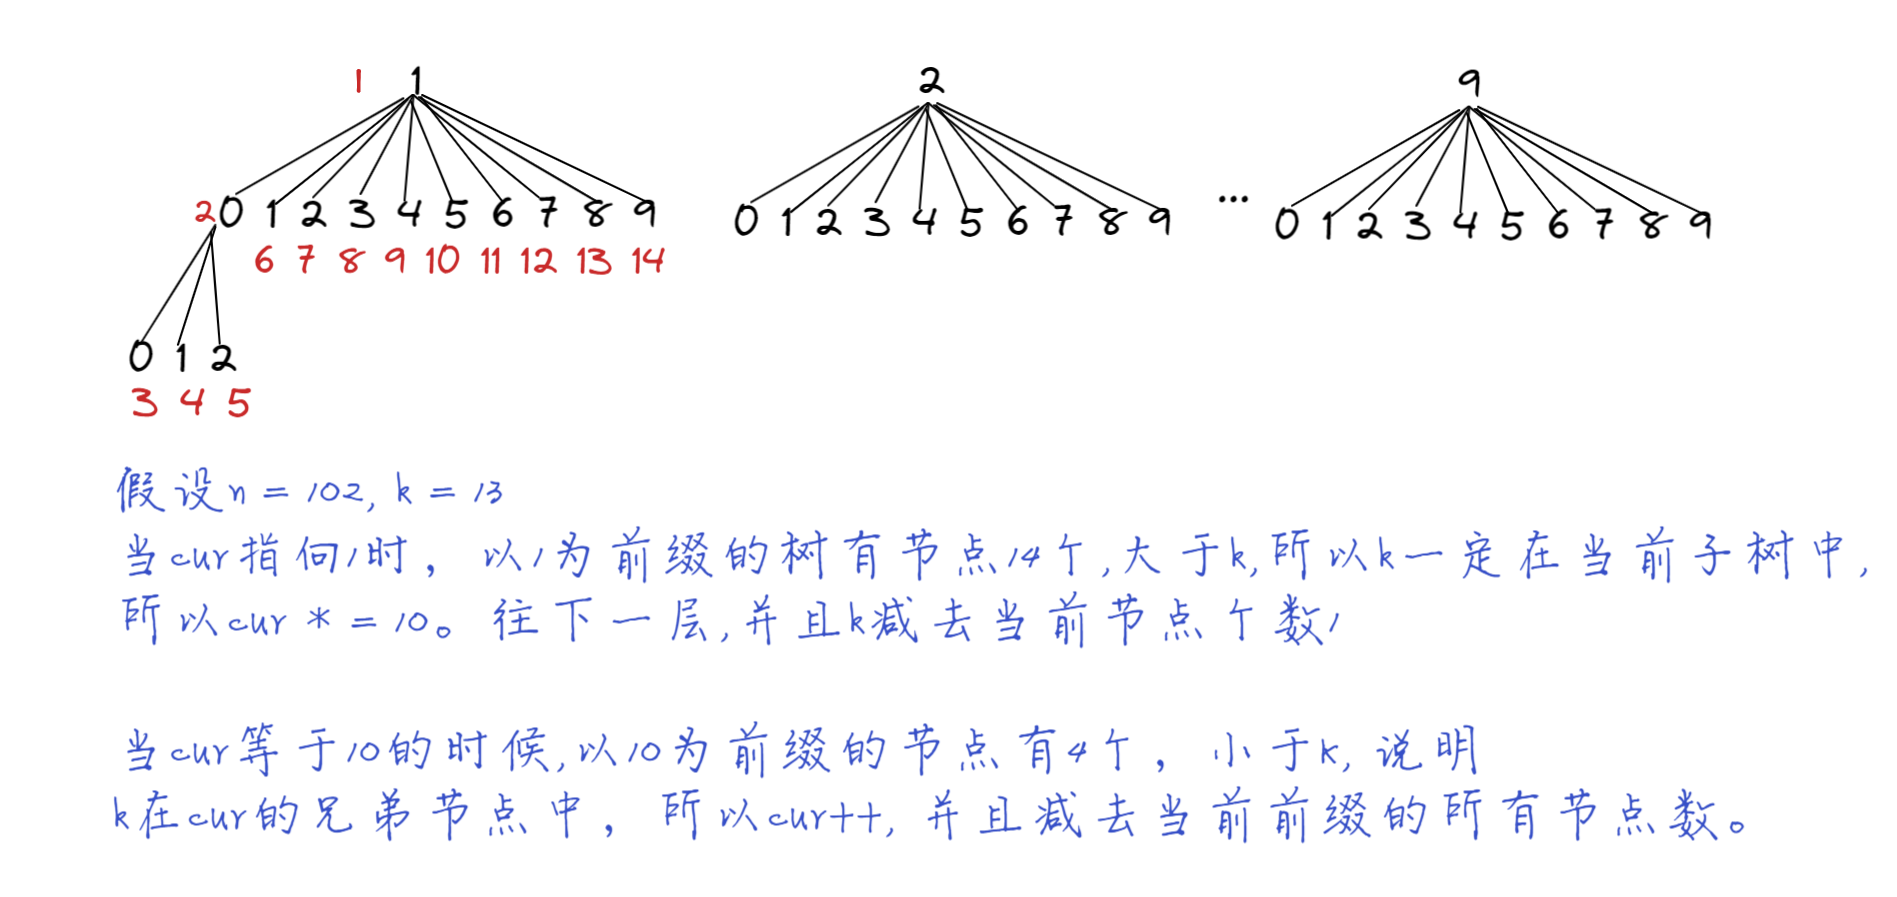 1 1 2 9
2 0 1 2 3 4 5 6 7 8 9 0 1 2 3 4 5 6 7 8 9 ... 0 1 2 3 4 5 6 7 8 9
6 7 8 9 10 11 12 13 14
0 1 2
3 4 5
假设n = 102, k = 13
当cur指向1时，以1为前缀的树有节点14个,大于k,所以k一定在当前子树中,
所以cur * = 10。往下一层,并且k减去当前节点个数1
当cur等于10的时候,以10为前缀的节点有4个，小于k,说明
k在cur的兄弟节点中，所以cur++,并且减去当前前缀的所有节点数。